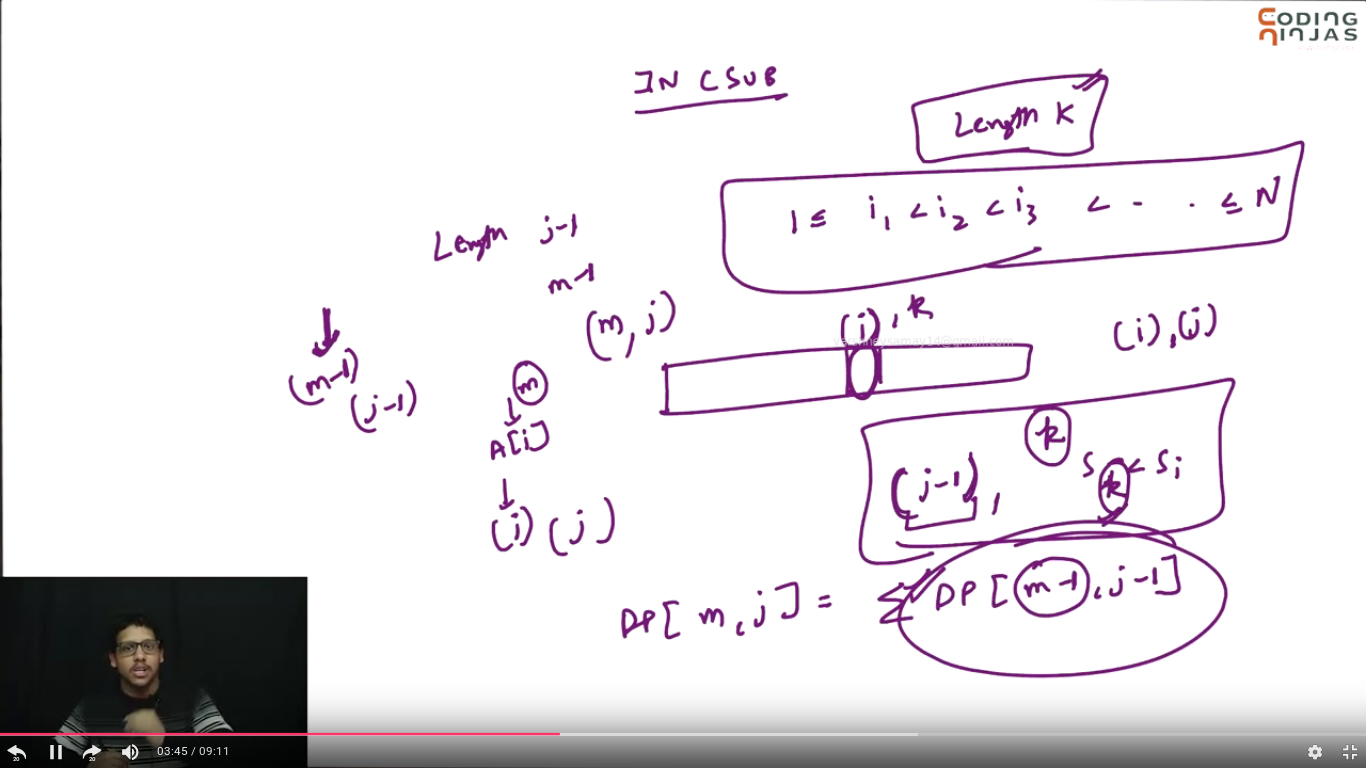 CODING
NINJAS
IN C SUB
Length K
1 ≤ i₁ < i₂ < i₃ < - . ≤ N
Length j-1
m-1
(m, j)
(i), k
(i), (j)
(m-1)
(j-1)
m
A[i]
(i) (j)
k
(j-1), S k < Si
DP[m, j] = Σ DP[m-1, j-1]
20
20
03:45 / 09:11